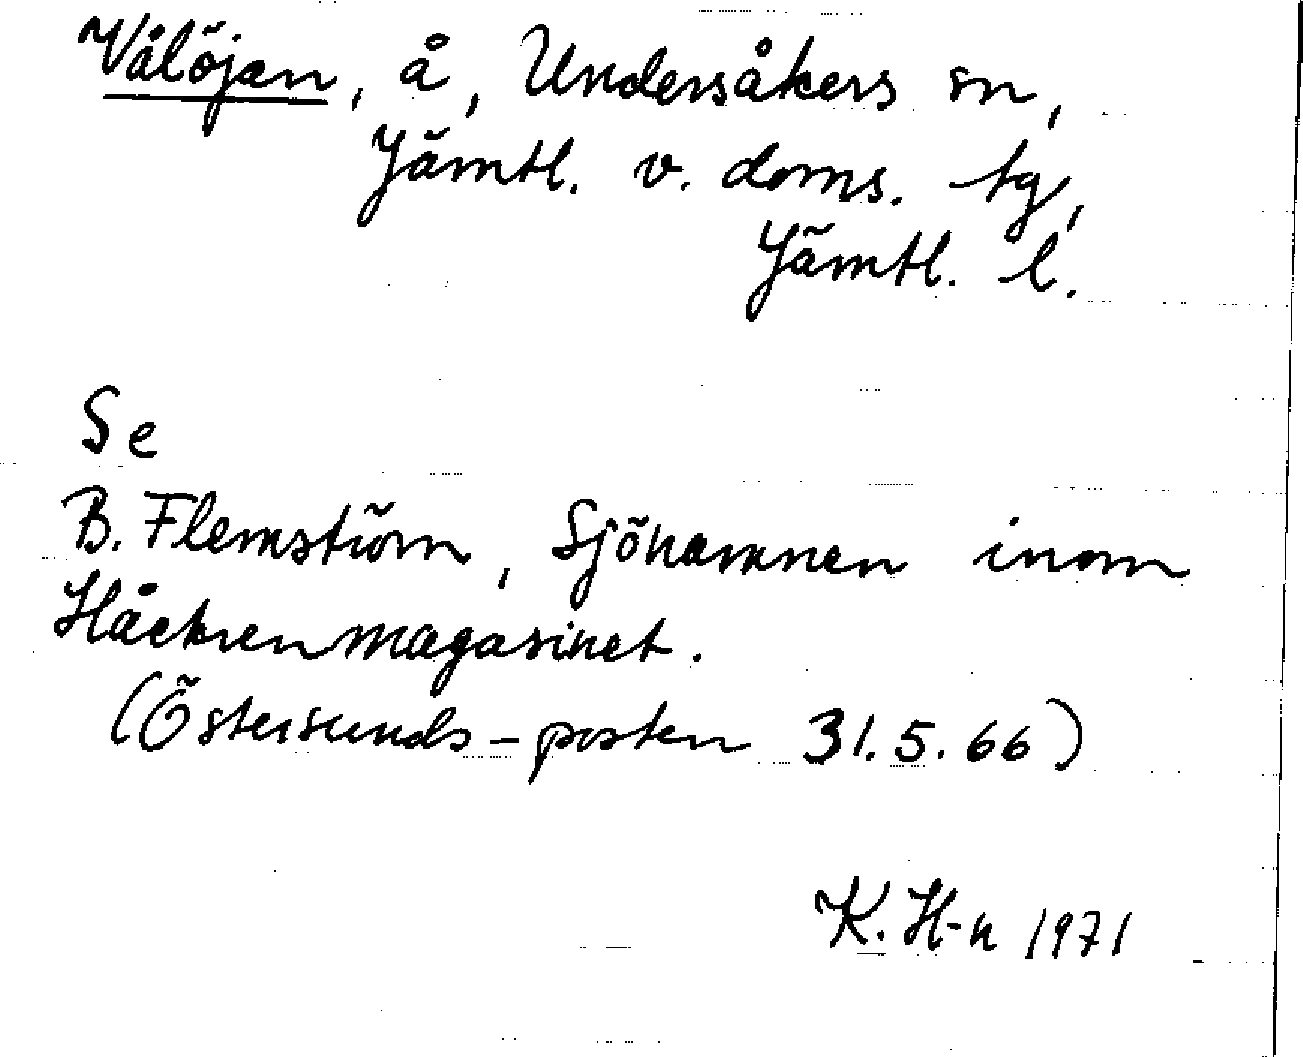 Vålöjan, å, Undersåkers sn,
Jämtl. v. doms. tg,
Jämtl. l.
Se
B. Flemström, Sjöhamnen inom
Håckrenmagasinet.
(Östersunds-posten 31.5.66)
K. H-n 1971